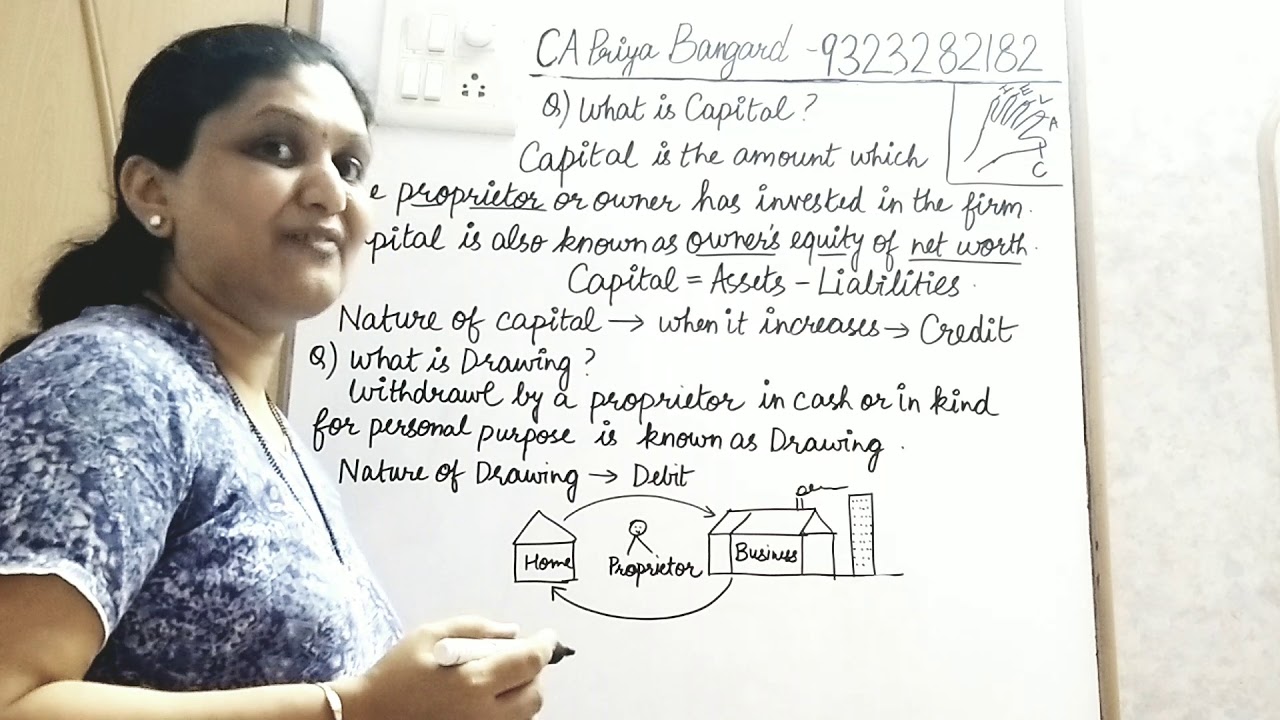 CA Priya Bangard - 9323282182
Q) What is Capital?
Capital is the amount which
e proprietor or owner has invested in the firm.
pital is also known as owner's equity of net worth.
Capital = Assets - Liabilities.
Nature of capital → when it increases → Credit
Q) What is Drawing?
Withdrawl by a proprietor in cash or in kind
for personal purpose is known as Drawing.
Nature of Drawing → Debit
Home
Proprietor
Business
I E L A C